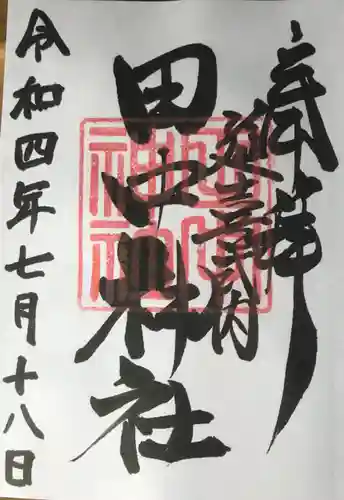 奉拝
延喜式内
田中神社
令和四年七月十八日